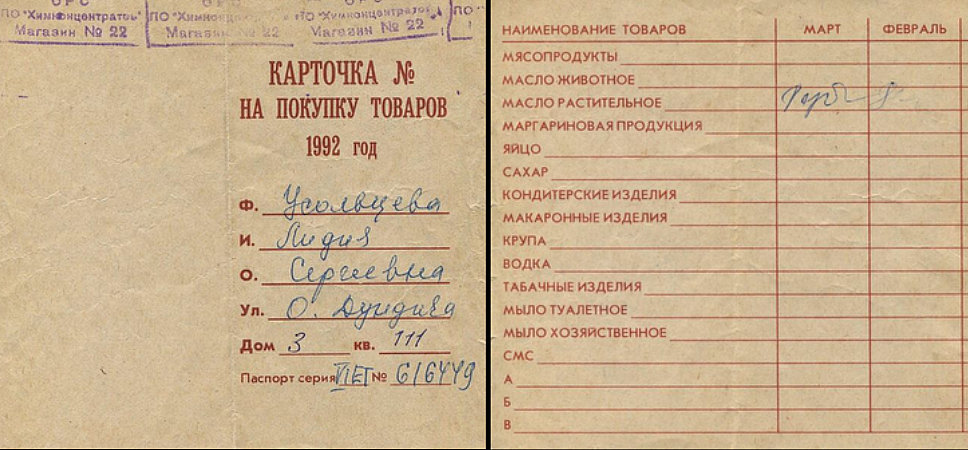 ОРС
ПО "Химконцентратов" ПО "Химконц ПО "Химконцентратов" ПО "
Магазин № 22 Магазин № 22 Магазин № 22
КАРТОЧКА №
НА ПОКУПКУ ТОВАРОВ
1992 год
Ф. Усольцева
И. Лидия
О. Сергеевна
Ул. О. Дундича
Дом 3 кв. 111
Паспорт серия № 616449
НАИМЕНОВАНИЕ ТОВАРОВ МАРТ ФЕВРАЛЬ
МЯСОПРОДУКТЫ
МАСЛО ЖИВОТНОЕ
МАСЛО РАСТИТЕЛЬНОЕ
МАРГАРИНОВАЯ ПРОДУКЦИЯ
ЯЙЦО
САХАР
КОНДИТЕРСКИЕ ИЗДЕЛИЯ
МАКАРОННЫЕ ИЗДЕЛИЯ
КРУПА
ВОДКА
ТАБАЧНЫЕ ИЗДЕЛИЯ
МЫЛО ТУАЛЕТНОЕ
МЫЛО ХОЗЯЙСТВЕННОЕ
СМС
А
Б
В